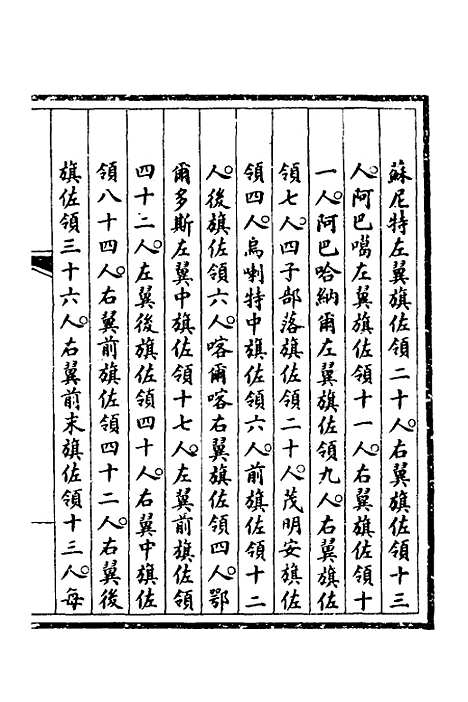 蘇尼特左翼旗佐領二十人。右翼旗佐領十三
人。阿巴噶左翼旗佐領十一人。右翼旗佐領十
一人。阿巴哈納爾左翼旗佐領九人。右翼旗佐
領七人。四子部落旗佐領二十人。茂明安旗佐
領四人。烏喇特中旗佐領六人。前旗佐領十二
人。後旗佐領六人。喀爾喀右翼旗佐領四人。鄂
爾多斯左翼中旗佐領十七人。左翼前旗佐領
四十二人。左翼後旗佐領四十人。右翼中旗佐
領八十四人。右翼前旗佐領四十二人。右翼後
旗佐領三十六人。右翼前末旗佐領十三人。每